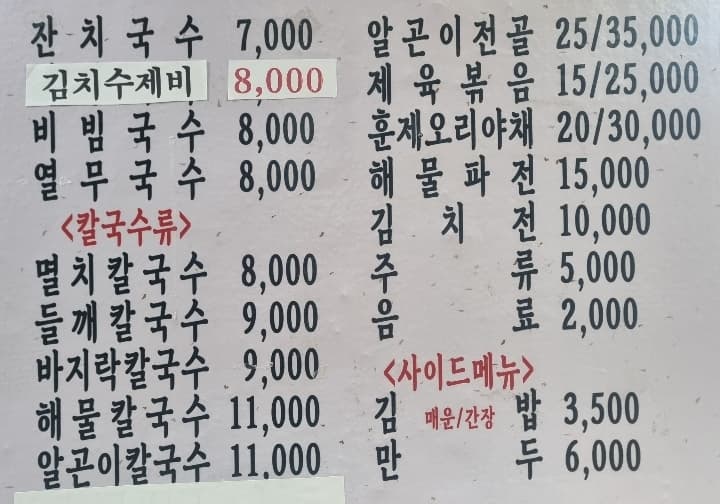 잔치국수 7,000
김치수제비 8,000
비빔국수 8,000
열무국수 8,000
<칼국수류>
멸치칼국수 8,000
들깨칼국수 9,000
바지락칼국수 9,000
해물칼국수 11,000
알곤이칼국수 11,000
알곤이전골 25/35,000
제육볶음 15/25,000
훈제오리야채 20/30,000
해물파전 15,000
김치전 10,000
주류 5,000
음료 2,000
<사이드메뉴>
김 매운/간장 밥 3,500
만두 6,000